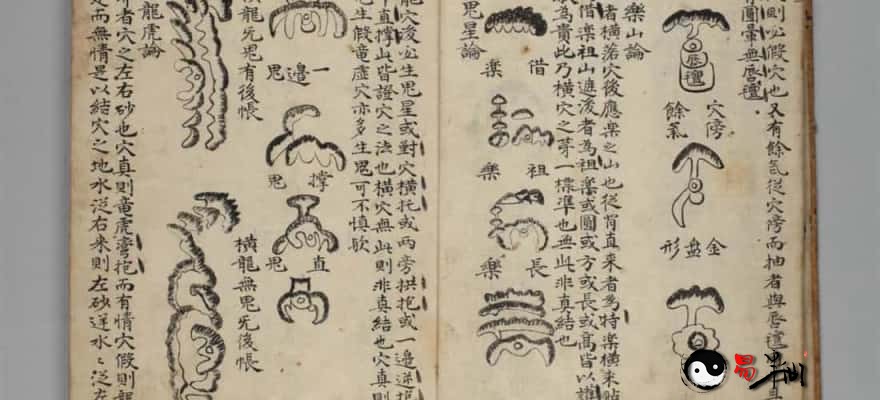 則必假穴也又有餘氣從穴傍而抽者與唇氊
有圓暈無唇氊
唇氊
穴傍餘氣
金盤形
樂山論
者橫落穴後應樂之山也從背直来者為特樂橫来貼
借樂祖山遮後者為祖樂或圓或方或長或高皆以護
為貴此乃橫穴之第一標準也無此非真結也
借樂
祖樂
長樂
鬼星論
龍穴後必生鬼星或對穴橫托或兩旁拱抱或一邉逆抱
直撑此皆證穴之法也橫穴無此則非真結也穴真則
生假竜虛穴亦多生鬼可不慎歟
一邉鬼
撑鬼
直鬼
橫龍无鬼有後帳
橫龍無鬼无後帳
龍虎論
者穴之左右砂也穴真則竜虎彎抱而有情穴假則龍
而無情是以結穴之地水從右来則左砂逆水〻從左
易